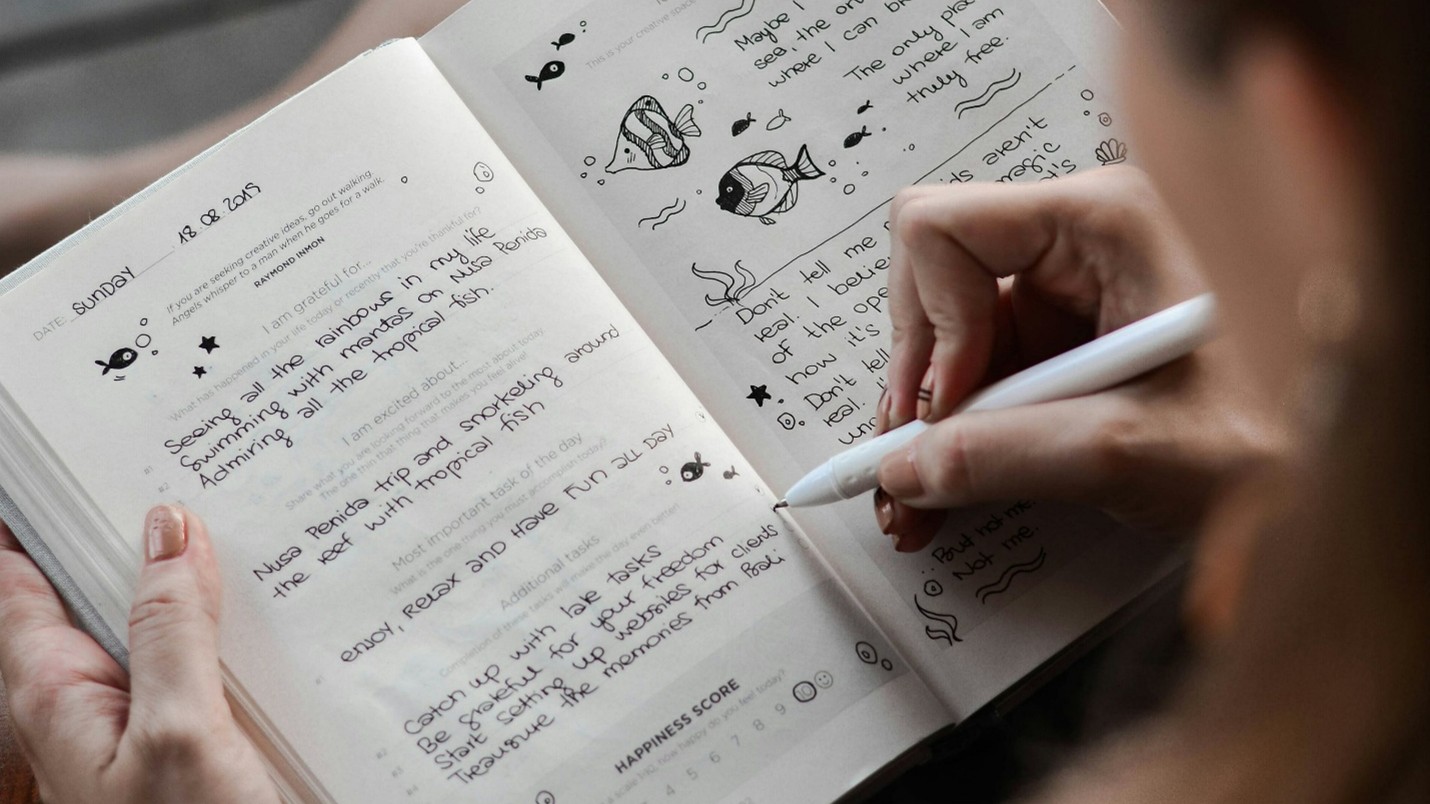 DATE: SUNDAY 18.08.2019
If you are seeking creative ideas, go out walking.
Angels whisper to a man when he goes for a walk.
RAYMOND INMON
I am grateful for...
What has happened in your life today or recently that you're thankful for?
#1 Seeing all the rainbows in my life
#2 Swimming with mantas on Nusa Penida
Admiring all the tropical fish.
I am excited about...
Share what you are looking forward to the most about today.
The one thing that makes you feel alive!
Nusa Penida trip and snorkeling around
the reef with tropical fish
Most important task of the day
What is the one thing you must accomplish today?
ENJOY, RELAX AND HAVE FUN ALL DAY
Additional tasks
Completion of these tasks will make the day even better!
Catch up with late tasks
#2 Be grateful for your freedom
#3 Start setting up websites for clients
#4 Treausure the memories from Bali
HAPPINESS SCORE
scale 1-10, how happy do you feel today?
4 5 6 7 8 9 10
This is your creative space
Maybe I
sea, the on
where I can b
The only pla
where I am
truly free.
ds aren't
magic
t's
Don't tell me
real. I believe
of the ope
how it's
Don't tell
real.
un
But not me.
Not me.